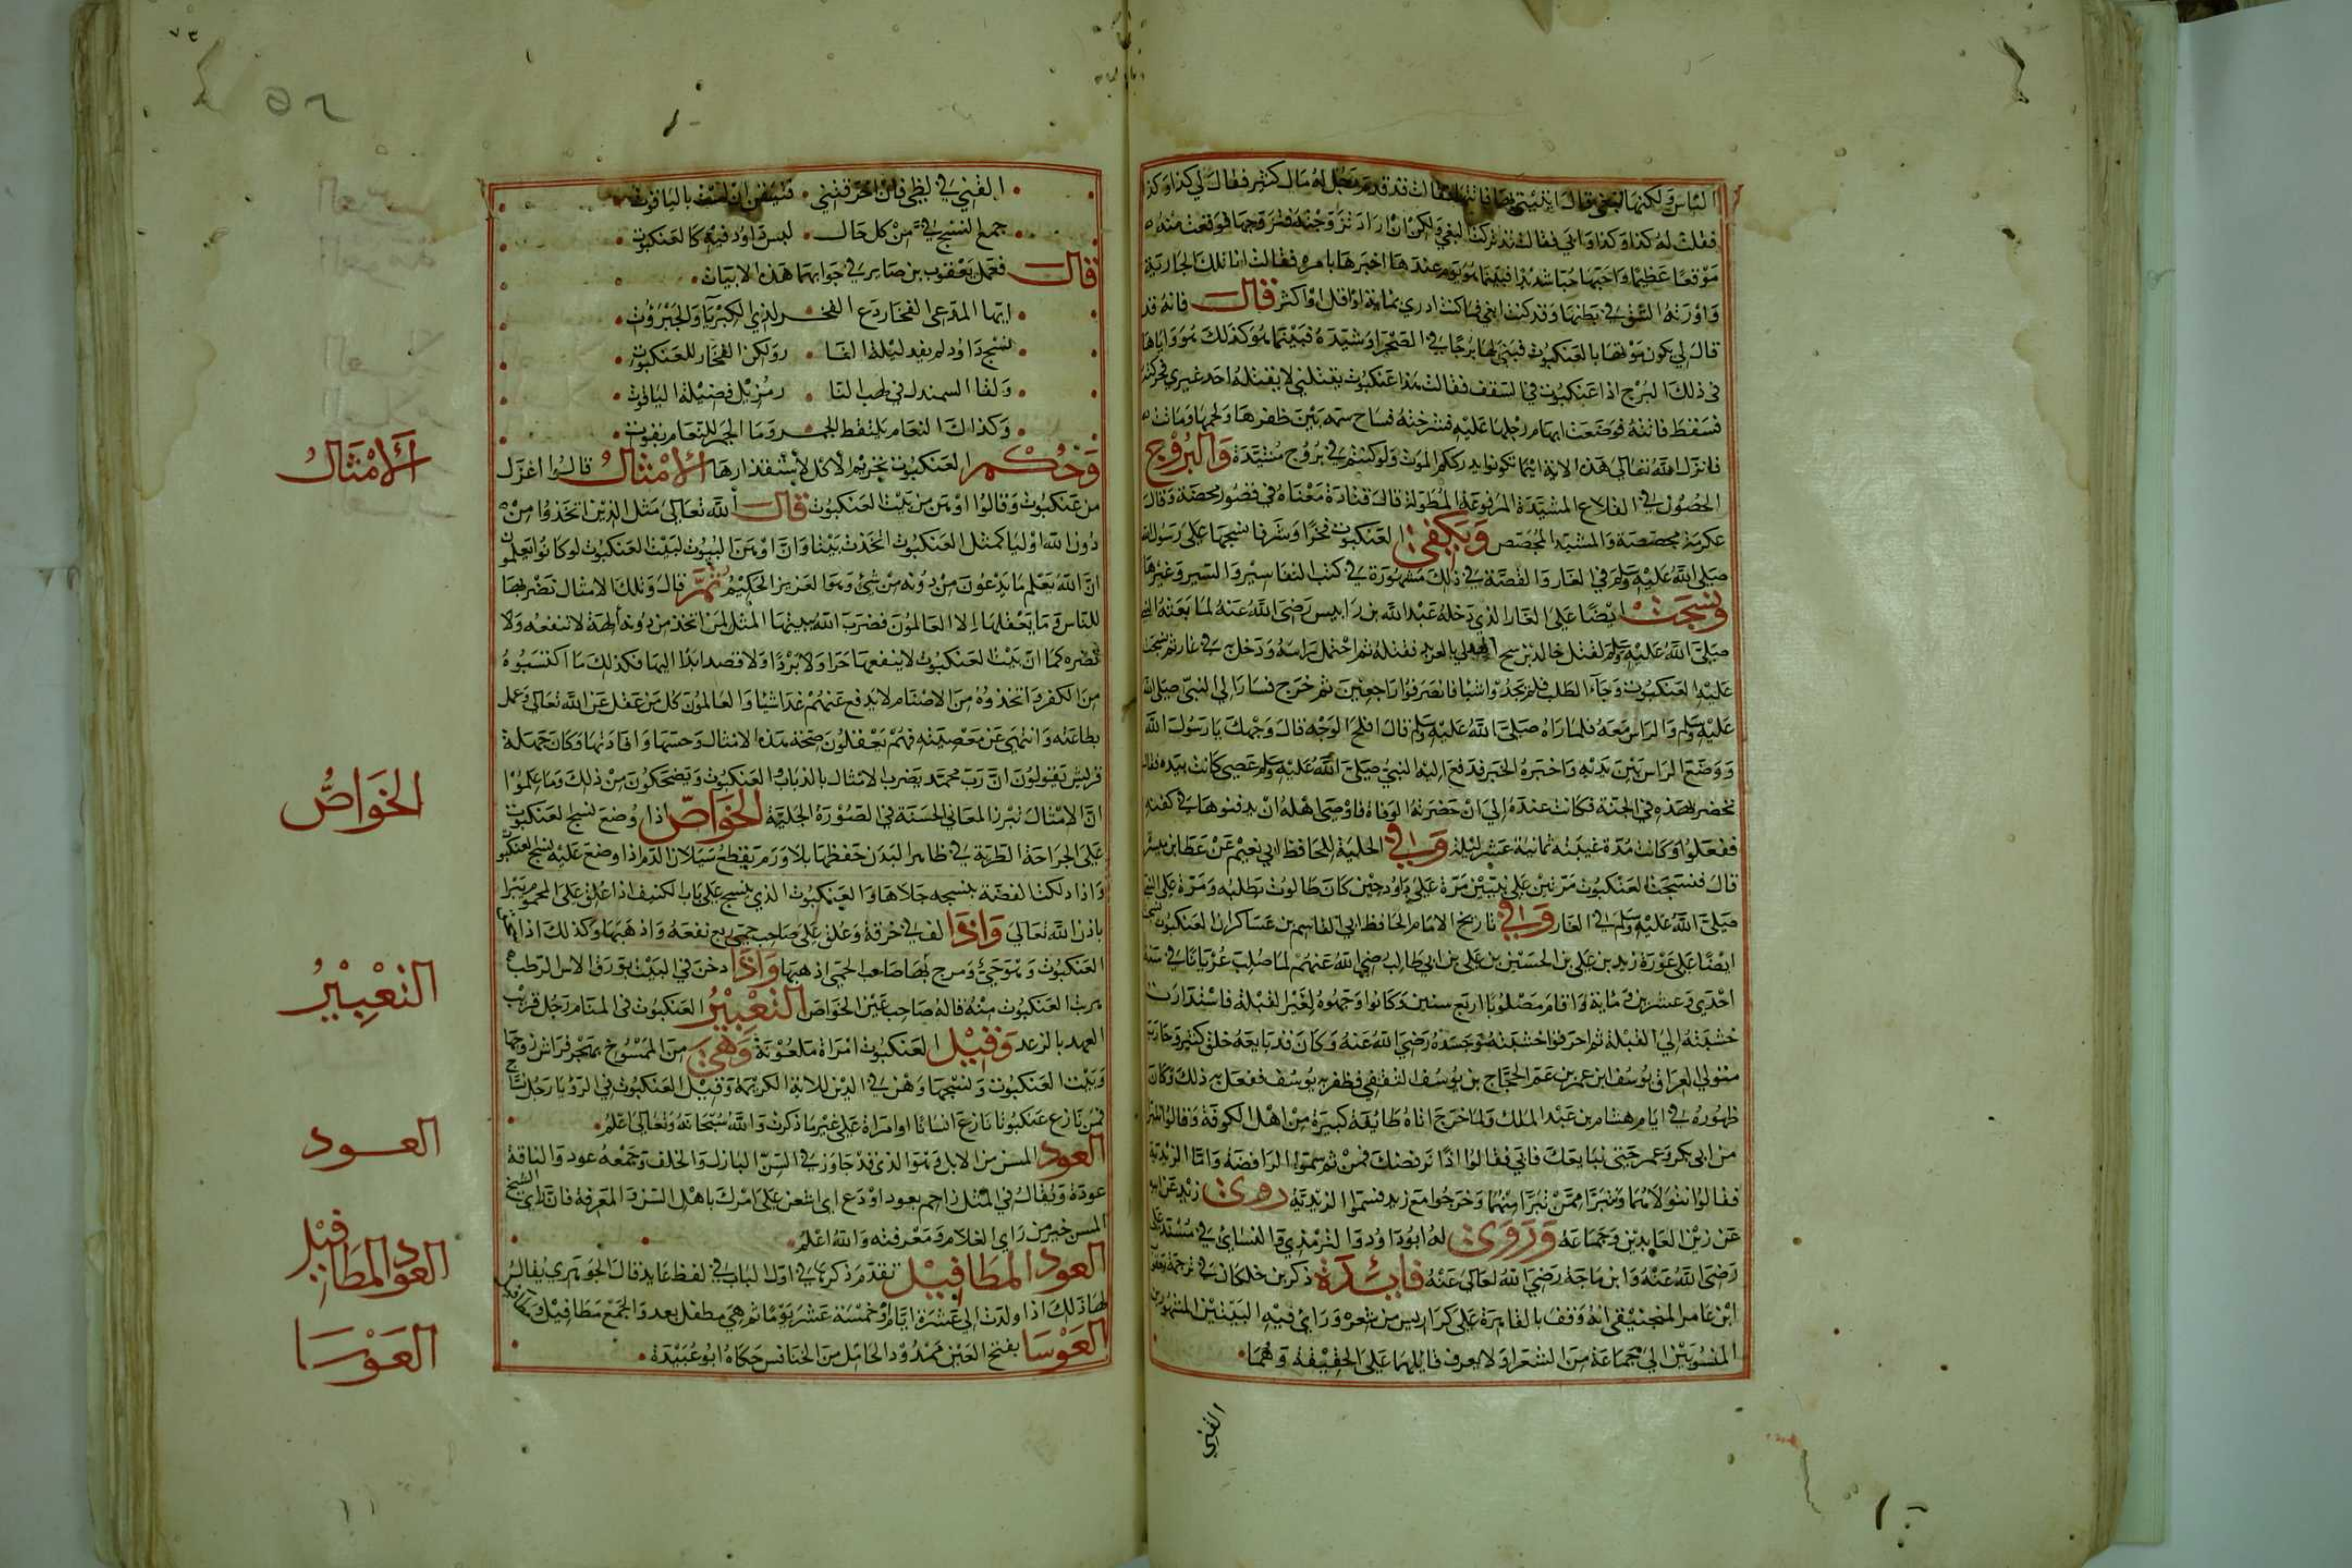 الناس ولكنها تبغي قال ايتيني بها فاتتها فقالت قد قدم رجل له مال كثير فقال لي كذا وكذا
فقلت له كذا وكذا واني فقالت قد تركت البغي ولكن ان اراد تزوجته فتزوجها فوقعت منه
موقعا عظيما واحبها حبا شديدا فبينما هو يوم عندها اخبرها بامره فقالت انا تلك الجارية
واورته الشق في بطنها وقد كنت ابغي فما كنت ادري بماية او اقل او اكثر قال فانه قد
قال لي يكون موتها بالعنكبوت فبنى لها برجا في الصحراء وشيده فبينما هو كذلك هو واياها
في ذلك البرج اذا عنكبوت في السقف فقالت هذا عنكبوت يقتلني لا يقتله احد غيري فحركته
فسقط فاتته فوضعت ابهام رجلها عليه فشدخته فساح سمه بين ظفرها ولحمها وماتت
فانزل الله تعالى هذه الاية اينما تكونوا يدرككم الموت ولو كنتم في بروج مشيدة والبروج
الحصون في القلاع المشيدة المرفوعة المطولة قال قتادة معناه في قصور محصنة وقال
عكرمة مجصصة والمشيد المجصص ويكفي العنكبوت فخرا وشرفا نسجها على رسول الله
صلى الله عليه وسلم في الغار والقصة في ذلك مشهورة في كتب التفاسير والسير وغيرها
ونسجت ايضا على الغار الذي دخله عبد الله بن رابيس رضي الله عنه لما بعثه النبي
صلى الله عليه وسلم لقتل خالد بن سح الهذلي بالعرنه فقتله ثم احتمل راسه ودخل في غار ثم نسجت
عليه العنكبوت وجاء الطلب فلم يجدوا شيا فانصرفوا راجعين ثم خرج فسار الى النبي صلى الله
عليه وسلم والراس معه فلما راه صلى الله عليه وسلم قال افلح الوجه قال وجهك يا رسول الله
ووضع الراس بين يديه واخبره الخبر فدفع اليه النبي صلى الله عليه وسلم عصى كانت بيده فقال
تحضر بهذه في الجنة فكانت عنده الى ان حضرته الوفاة فاوصى اهله ان يدفنوها في كفنه
ففعلوا وكانت مدة غيبته ثمانية عشر ليلة وفي الحلية للحافظ ابي نعيم عن عطا بن ميسرة
قال فنسجت العنكبوت مرتين على نبيين مرة على داود حين كان طالوت يطلبه ومرة على النبي
صلى الله عليه وسلم في الغار وفي تاريخ الامام الحافظ ابي القاسم بن عساكر ان العنكبوت نسجت
ايضا على عورة زيد بن علي بن الحسين بن علي بن ابي طالب رضي الله عنهم لما صلب عريانا في سنة
احدى وعشرين وماية واقام مصلوبا اربع سنين وكانوا وجهوه لغير القبلة فاستدارت
خشبته الى القبلة ثم احرقوا خشبته وجسده رضي الله عنه وكان قد بايعه خلق كثير وحاربه
متولي العراق يوسف ابن عمر بن عم الحجاج بن يوسف الثقفي فظفر به يوسف ففعل به ذلك وكان
ظهوره في ايام هشام بن عبد الملك ولما خرج اتاه طايفة كبيرة من اهل الكوفة وقالوا تبرا
من ابي بكر وعمر حتى نبايعك فابى فقالوا اذا نرفضك فمن ثم سموا الرافضة واما الزيدية
فقالوا نتولاهما ونتبرا ممن تبرا منهما وخرجوا مع زيد فسموا الزيدية روى زيد عن ابيه
عن زين العابدين وجماعة وروى له ابو داود والترمذي والنسائي في مسند علي
رضي الله عنه وابن ماجة رضي الله تعالى عنه فايدة ذكر بن خلكان في ترجمة يعقوب
ابن صابر المنجنيقي انه وقف بالقاهرة على كراريس من شعره وراى فيه البيتين المشهورين
المنسوبين الى جماعة من الشعرا ولا يعرف قايلهما على الحقيقة وهما
القني
٥٦
القني في لظى فان احرقتني فتيقن ان لست بالياقوت
جمع النسج في من كل حال ليس داود فيه كالعنكبوت
قال فعمل يعقوب بن صابر في جوابهما هذه الابيات
ايها المدعي الفخار دع الفخر لذي الكبريا والجبروت
نسج داود لم يفد ليلة الغا ر ولكن الفخار للعنكبوت
وبقا السمندل في لهب النا ر مزيل فضيلة الياقوت
وكذاك النعام يلتقط الجمر وما الجمر للنعام بقوت
وحكم العنكبوت تحريم الاكل لاستقذارها الامثال قالوا اغزل
من عنكبوت وقالوا اوهن من بيت العنكبوت قال الله تعالى مثل الذين اتخذوا من
دون الله اوليا كمثل العنكبوت اتخذت بيتا وان اوهن البيوت لبيت العنكبوت لو كانوا يعلمون
ان الله يعلم ما يدعون من دونه من شئ وهو العزيز الحكيم ثم قال وتلك الامثال نضربها
للناس وما يعقلها الا العالمون فضرب الله بينها المثل لمن اتخذ من دونه الهة لا تنفعه ولا
تضره كما ان بيت العنكبوت لا ينفعها حرا ولا بردا ولا قصد ابدا اليها فكذلك ما اكتسبوه
من الكفر واتخذوه من الاصنام لا يدفع عنهم غدا شيا والعالمون كل من عقل عن الله تعالى وعمل
بطاعته وانتهى عن معصيته فهم يعقلون صحة هذه الامثال وحسنها وافادتها وكان جهلة
قريش يقولون ان رب محمد يضرب الامثال بالذباب والعنكبوت ويضحكون من ذلك وما علموا
ان الامثال تبرز المعاني الحسنة في الصورة الجلية الخواص اذا وضع نسج العنكبوت
على الجراحة الطرية في ظاهر البدن حفظها بلا ورم ويقطع سيلان الدم اذا وضع عليه نسج العنكبوت
واذا دلكت الفضة بنسيجه جلاها والعنكبوت الذي ينسج على باب الكنيف اذا علق على المحموم يبرا
باذن الله تعالى واذا لف في خرقة وعلق على صاحب حمى ربع نفعه واذهبها وكذلك اذا
العنكبوت وهو حي ومرج بها صاحب الحمى اذهبها واذا دخن في البيت بورق الاس الرطب
هربت العنكبوت منه قاله صاحب عين الخواص التعبير العنكبوت في المنام رجل قريب
العهد بالزهد وقيل العنكبوت امراة ملعونة وهي من الممسوخ تهجر فراش زوجها
وبيت العنكبوت ونسيجها وهن في الدين للاية الكريمة وقيل العنكبوت في الرؤيا رجل نساج
فمن نازع عنكبوتا نازع انسانا او امراة على غير ما ذكرت والله سبحانه وتعالى اعلم
العود المسن من الابل وهو الذي قد جاوز في السن البازل والخلف وجمعه عود والناقة
عودة ويقال في المثل زاحم بعود او دع اي استعن على امرك باهل السن والمعرفة فان راي الشيخ
المسن خير من راي الغلام ومعرفته والله اعلم
العود المطافيل تقدم ذكرها في اول الباب في لفظ عايد قال الجوهري يقال
لها ذلك اذا ولدت الى عشرة ايام او خمسة عشر يوما ثم هي مطفل بعد والجمع مطافيل
العوسا بفتح العين ممدود الحامل من الخنافس حكاه ابو عبيدة
الامثال
الخواص
التعبير
العود
العود المطافيل
العوسا